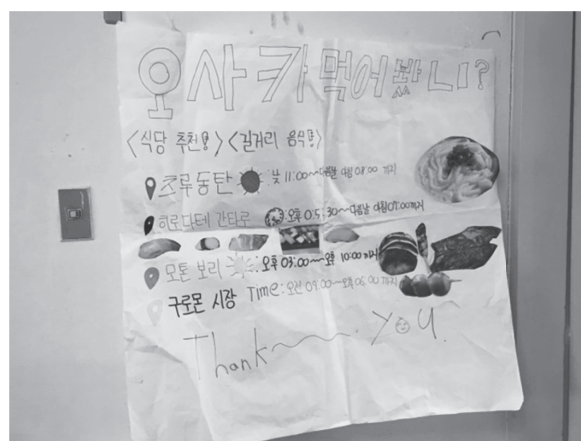 오사카 먹어 봤니?
<식당 추천!> <길거리 음식!>
츠루동탄 : 낮 11:00~다음날 아침 08:00 까지
히로 간타로 오후 05:30~다음날 아침 까지
모톤 보리 : 오후 03:00~오후 10:00 까지
구로몬 시장 Time: 오전 09:00~오후 06:00 까지
Thank~you.